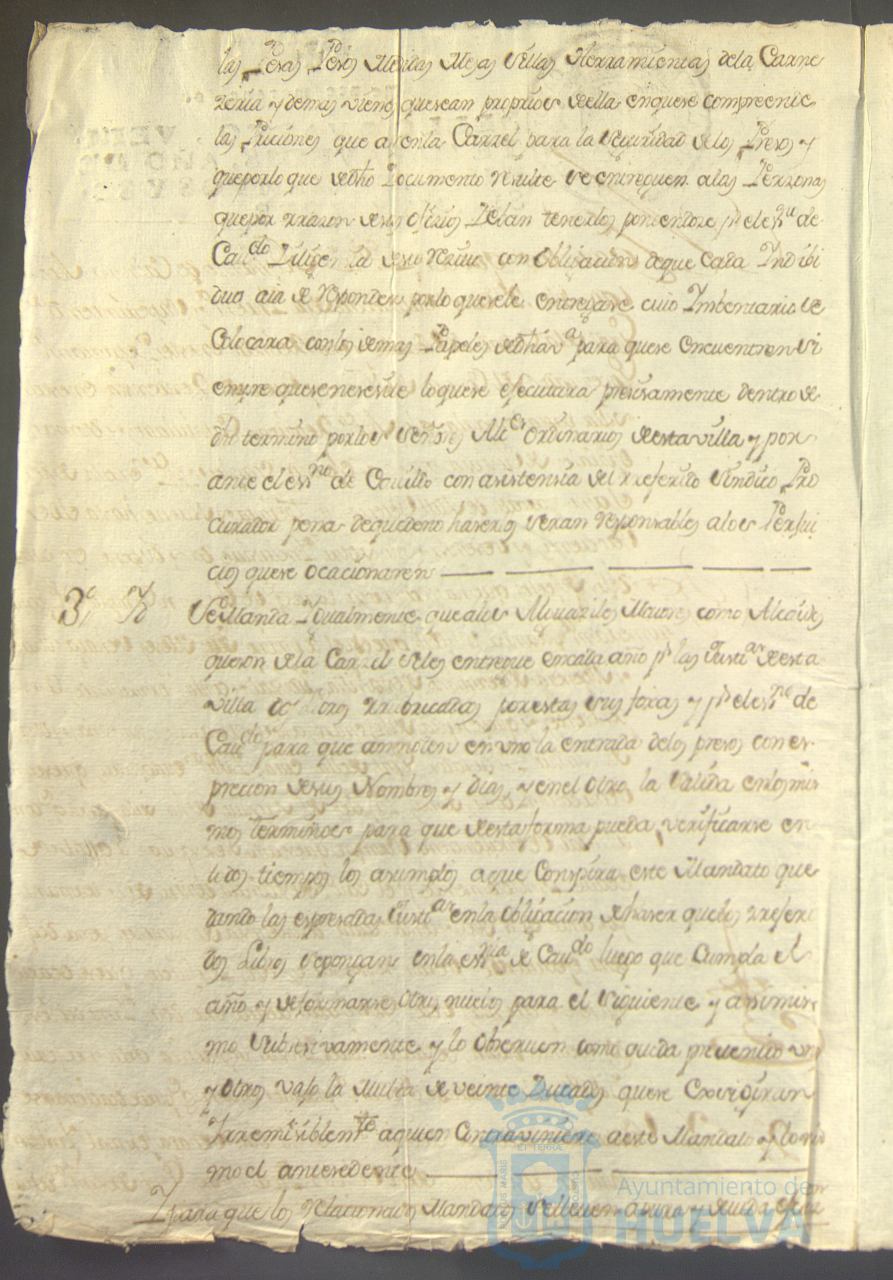 las Pesas Pesos Medidas Mesas Sillas Herramientas dela Carne
zeria y demas vienes quesean proprios de ella enquese compreenden
las Priciones que ai enla Carzel para la Seguridad delos Presos y
queporlo que de dho Documento resulte se entreguen alas Perzonas
quepor rrazon desus ofizios deban tenerlos poniendose pr el essno de
Cavdo Diligencia desu reciuo con obligacion deque Cada Indibi
duo aia de responder porlo quesele entregare cuio Imbentario se
Colocara conlos demas Papeles de dha va para quese encuentren si
empre quesenecesite loquese ejecutara precisamente dentro de
dho termino porlos Señores Alces ordinarios de esta villa y por
ante el essno de Cavildo con asistensia del rreferido Sindico Pro
curador pena dequedeno hazerlo seran responsables alos Perjui
cios quese ocacionaren
3º Yt Se Manda Igualmente que alos Alguaziles Maiores como Alcaides
queson dela Carzel seles entregue encada año pr las Justias de esta
villa dos libros rrubricados porestas sus foxas y pr el essno de
Cavdo para que annoten en uno la entrada delos presos con es
precion desus Nombres y dias, y en el otro la Salida enlosmis
mos terminos para que de esta forma pueda verificarse en
todos tiempos los asumptos aque Conspira este Mandato que
dando las espresadas Justias enla obligacion de haser quelos rreferi
dos Libros sepongan enla essnia de Cavdo luego que Cumpla el
año y deformarse otros nuevos para el Siguiente y asimis
mo subsesivamente y lo obseruen como queda preuenido unos
y otros vajo la Multa de veinte Ducados quese exsigiran
Irremisiblemte aquien Contraviniere aeste Mandato y lo mis
mo el antesedente
Y para que los relacionados Mandatos selleuen apura y deuida efec
Ayuntamiento de
HUELVA